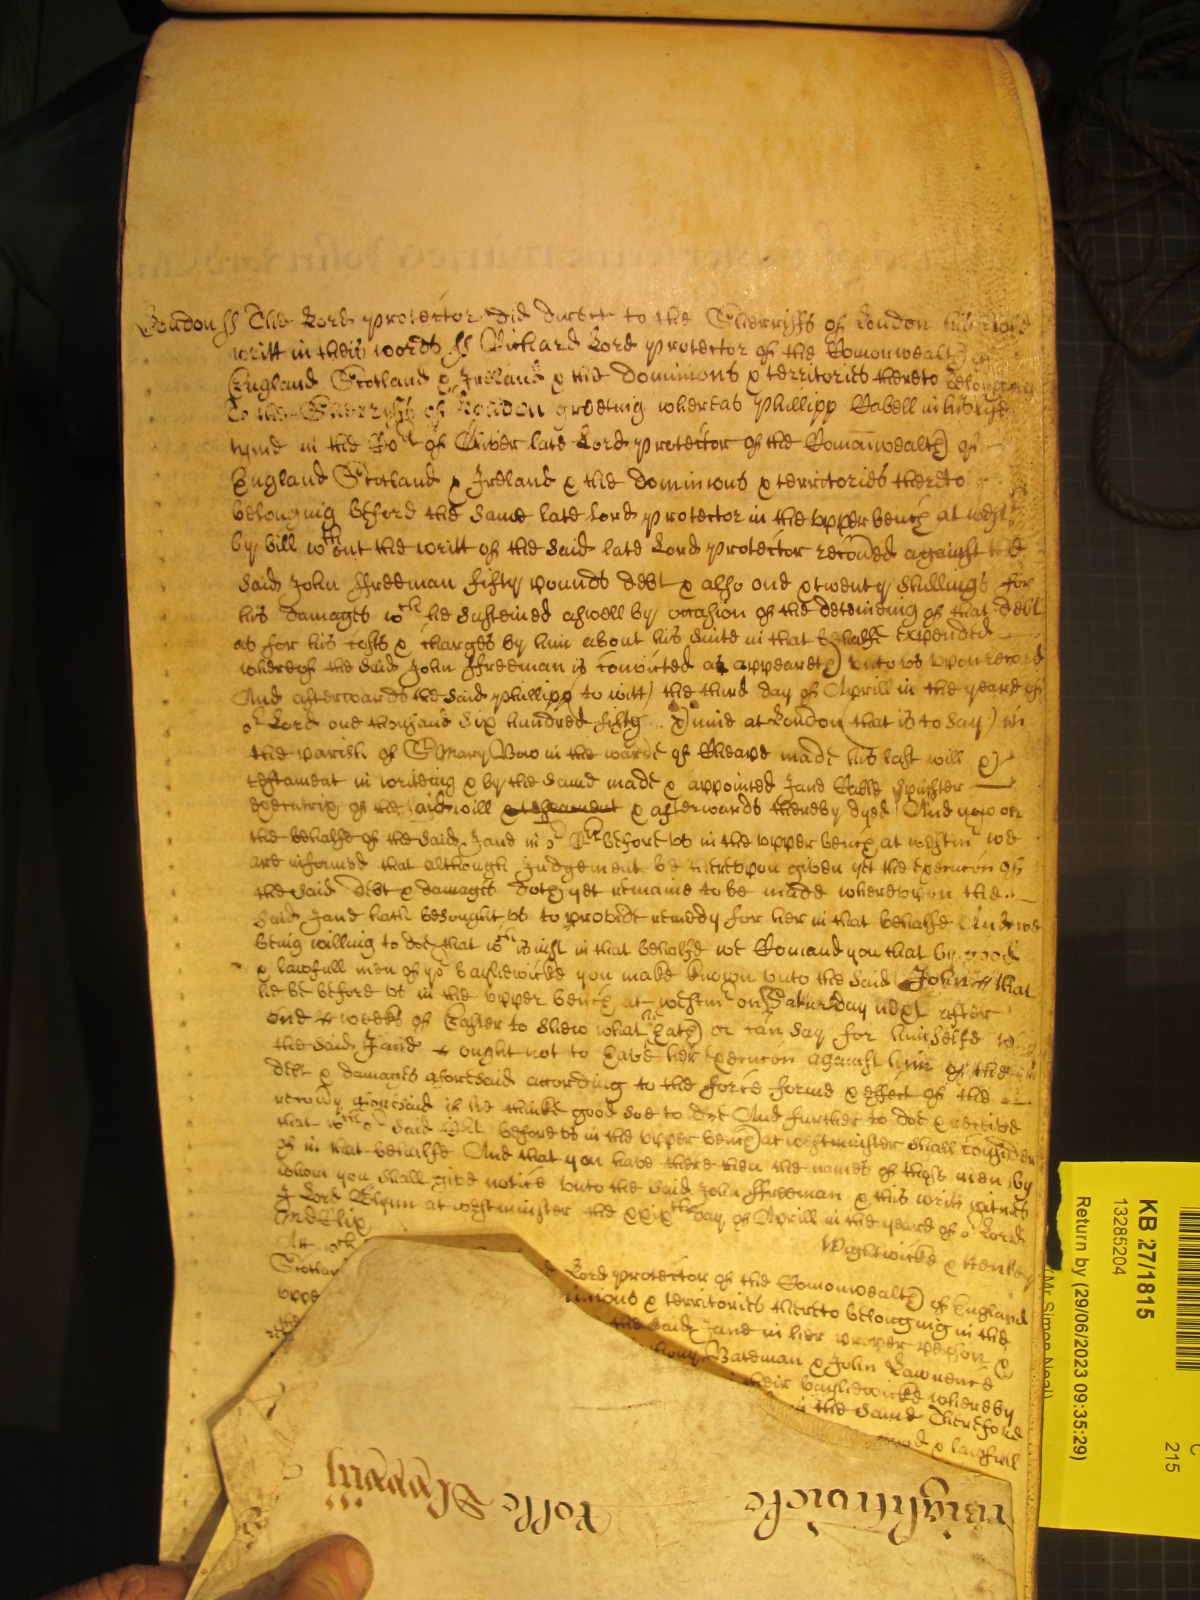 London ss The Lord Protector did direct to the Sherriffs of London his
writt in theis words ss Richard Lord Protector of the Comonwealth of
England Scotland & Ireland & the dominions & territories thereto belonging
To the Sherriffs of London greeting whereas Phillipp Cabell in his life
tyme in the Cort of Oliver late Lord Protector of the Comonwealth of
England Scotland & Ireland & the dominions & territories thereto
belonging before the same late Lord Protector in the upper bench at westmr
by bill wthout the writt of the said late Lord Protector recoued against the
said John Freeman fifty pounds debt & also one & twenty shillings for
his damages wch he susteined aswell by occasion of the deteineing of that debt
as for his costs & charges by him about his suite in that behalfe expended
whereof the said John Freeman is convicted as appeareth unto us upon record
And afterwards the said Phillipp to witt the third day of Aprill in the yeare of
or Lord one thousand six hundred fifty & nine at London (that is to say) in
the parish of St Mary Bow in the warde of Cheape made his last will &
testament in writeing & by the same made & appointed Jane Spinster
Executrix of the said will & testament & afterwards thereby dyed And now on
the behalfe of the said Jane in or Cort before us in the upper bench at westmr we
are informed that although Judgement be thereupon given yet the execucon of
the said debt & damages doth yet remaine to be made whereupon the
said Jane hath besought us to provide remedy for her in that behalfe And we
being willing to doe that wch is just in that behalfe we Comand you that by good
& lawfull men of yor bayliewicke you make knowne unto the said John that
he be before us in the upper bench at westmr on Saturday next after
one weeks of Easter to shew what he hath or can say for himselfe why
the said Jane ought not to have her execucon against him of the
debt & damages aforesaid according to the force forme & effect of the
recovy aforesaid if he thinke good soe to doe And further to doe & receive
that wch or said Cort before us in the upper bench at westminster shall consider
of in that behalfe And that you have there then the names of those men by
whom you shall give notice unto the said John Freeman & this writt witnes
J Lord Glynn at westminster the xxixth day of Aprill in the yeare of or Lord
MDCLix
Wightwicke & Henley
Att wch
Scotlan Lord Protector of the Comonwealth of England
uppe & territories thereto belonging in the
the the said Jane in her proper person &
Bateman & John Lawrence
their bayliewicke whereby
in the same Therefore
good & lawfull
Wightwicke
Rolle
KB 27/1815
13285204
Return by (29/06/2023 09:35:29)
(Mr Simon Neal)
C
215